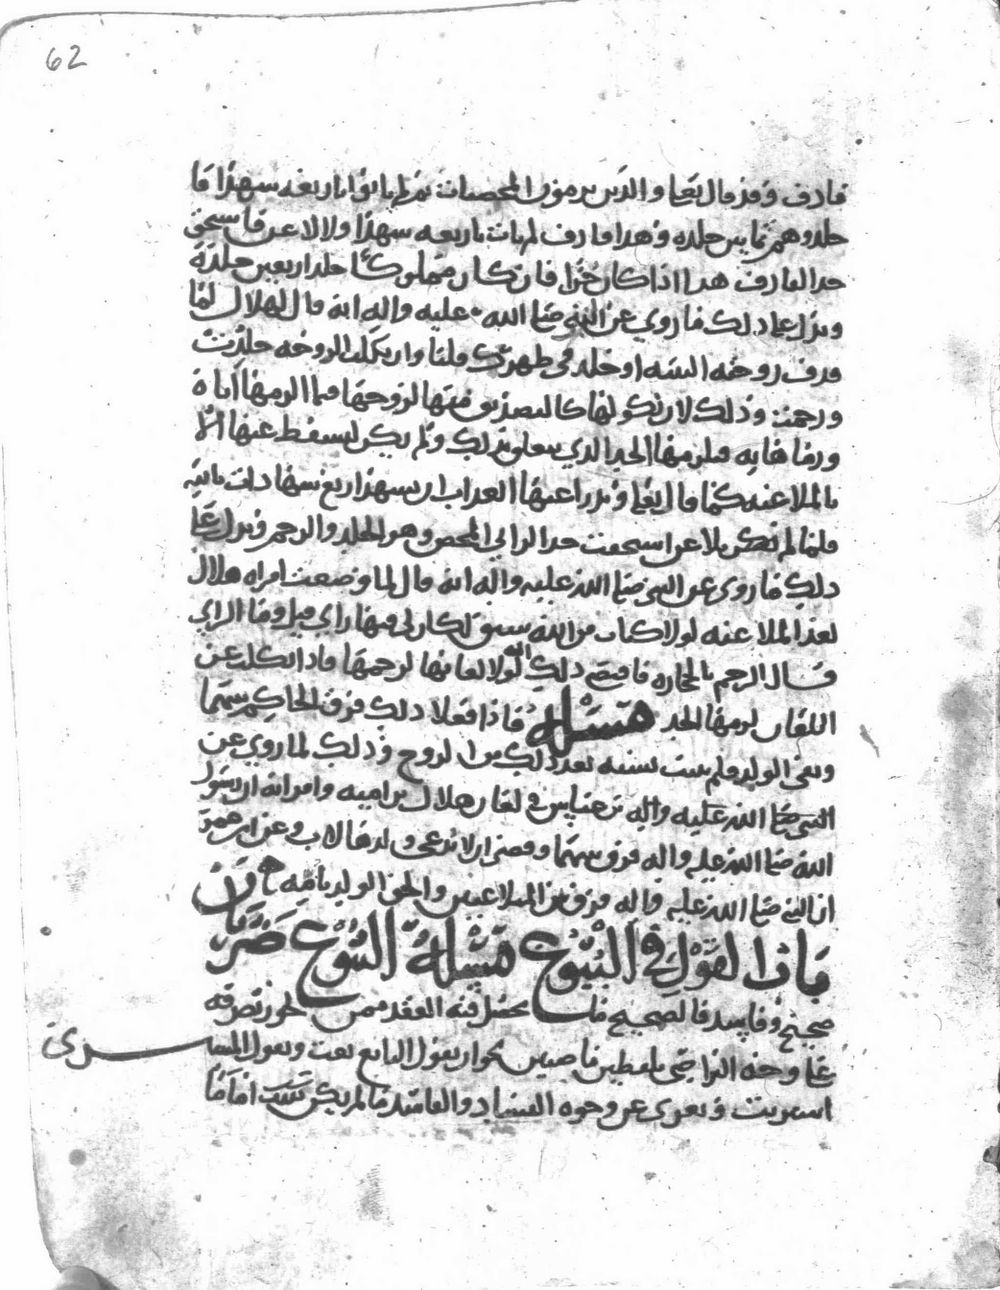 62
قاذف وقد قال تعالى والذين يرمون المحصنات ثم لم ياتوا باربعه شهدا فا
جلدوهم ثمانين جلده وهذا قاذف لم يات باربعه شهدا ولا لاعن فاستحق
حد القاذف هذا اذا كان حرا فان كان مملوكا جلد اربعين جلدة
ويدل على ذلك ما روي عن النبي صلى الله عليه واله انه قال لهلال لما
قذف زوجته البينه او حد في ظهرك قلنا وان نكلت الزوجه حدت
ورجمت وذلك لان نكولها كالتصديق منها لزوجها فيما الزمها اياه
ورماها به فلزمها الحد الذي يتعلق بذلك ولم يكن ليسقط عنها الا
بالملاعنه كما قال تعالى ويدرا عنها العذاب ان تشهد اربع شهادات بالله
فلما لم تكن بلاعن استحقت حد الزاني المحصن وهو الجلد والرجم ويدل على
ذلك ما روي عن النبي صلى الله عليه واله انه قال لما وضعت امراه هلال
بعد الملاعنه لولا كتاب من الله سبق لكان لي فيها راي قيل وما الراي
قال الرجم بالحجاره فاقتضى ذلك انه لولا لعانها لرجمها فاذا نكلت عن
اللعان لزمها الحد مسئله فاذا فعلا ذلك فرق الحاكم بينهما
ونفى الولد فلم يثبت نسبه بعد ذلك من الزوج وذلك لما روي عن
النبي صلى الله عليه واله عن عباس في لعان هلال بن اميه وامراته ان رسول
الله صلى الله عليه واله فرق بينهما وقضى ان لا يدعى ولدها لاب وعن ابن عمر
ان النبي صلى الله عليه واله فرق بين المتلاعنين والحق الولد بامه
باب القول في البيوع مسئلة البيوع ضربان
صحيح وفاسد فالصحيح ما يحصل فيه العقد ممن يجوز تصرفه
على وجه التراضي بلفظين ماضيين نحو ان يقول البايع بعت ويقول المشتري
اشتريت ويعرى عن وجوه الفساد والفاسد ما لم يكن كذلك اما ما